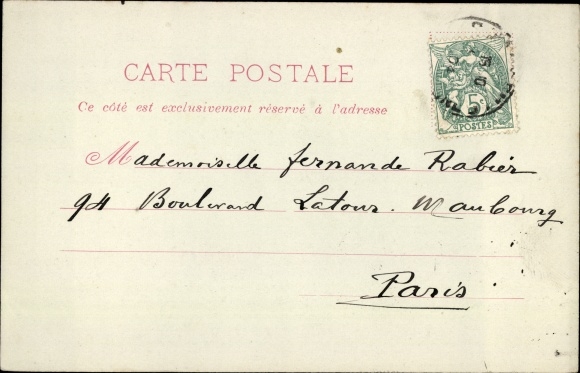 CARTE POSTALE
Ce côté est exclusivement réservé à l'adresse
5c
POSTES
Mademoiselle Fernande Rabier
94 Boulevard Latour. Maubourg
Paris